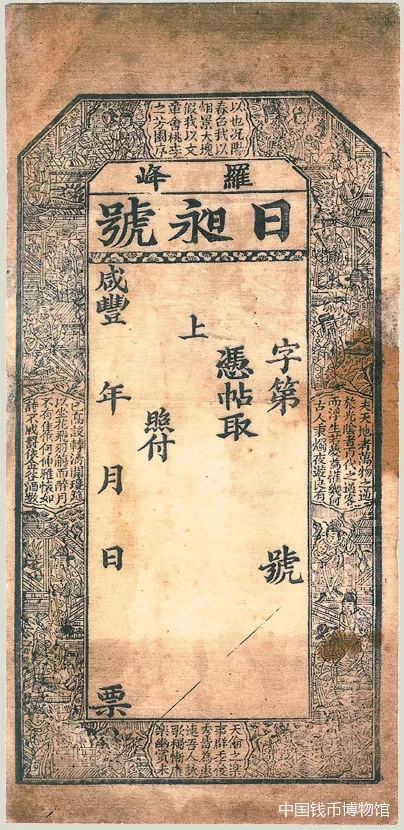 以也況陽
春召我以
烟景大塊
假我以文
章會桃李
之芳園序
羅峰
日昶號
字第 號
憑帖取
上
照付
咸豐 年 月 日 票
夫天地者萬物之逆
旅光陰者百代之過客
而浮生若夢為懽幾何
古人秉燭夜遊良有
天倫之樂
事群季俊
秀皆為惠
連吾人詠
歌獨慚康
樂幽賞未
已高談轉清開瓊筵
以坐花飛羽觴而醉月
不有佳作何伸雅懷如
詩不成罰依金谷酒數
中国钱币博物馆